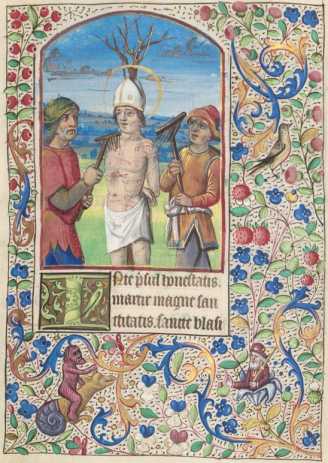 p̄sul honestatis.
martir magne san
ctitatis. sancte blasi